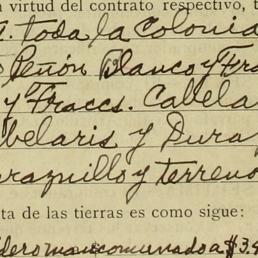 n virtud del contrato respectivo, t
toda la Colonia
Peñón Blanco y Fra
y Fraccs. Cabela
belaris y Dura
raquillo y terreno
ta de las tierras es como sigue:
dero mancomunado a $3.